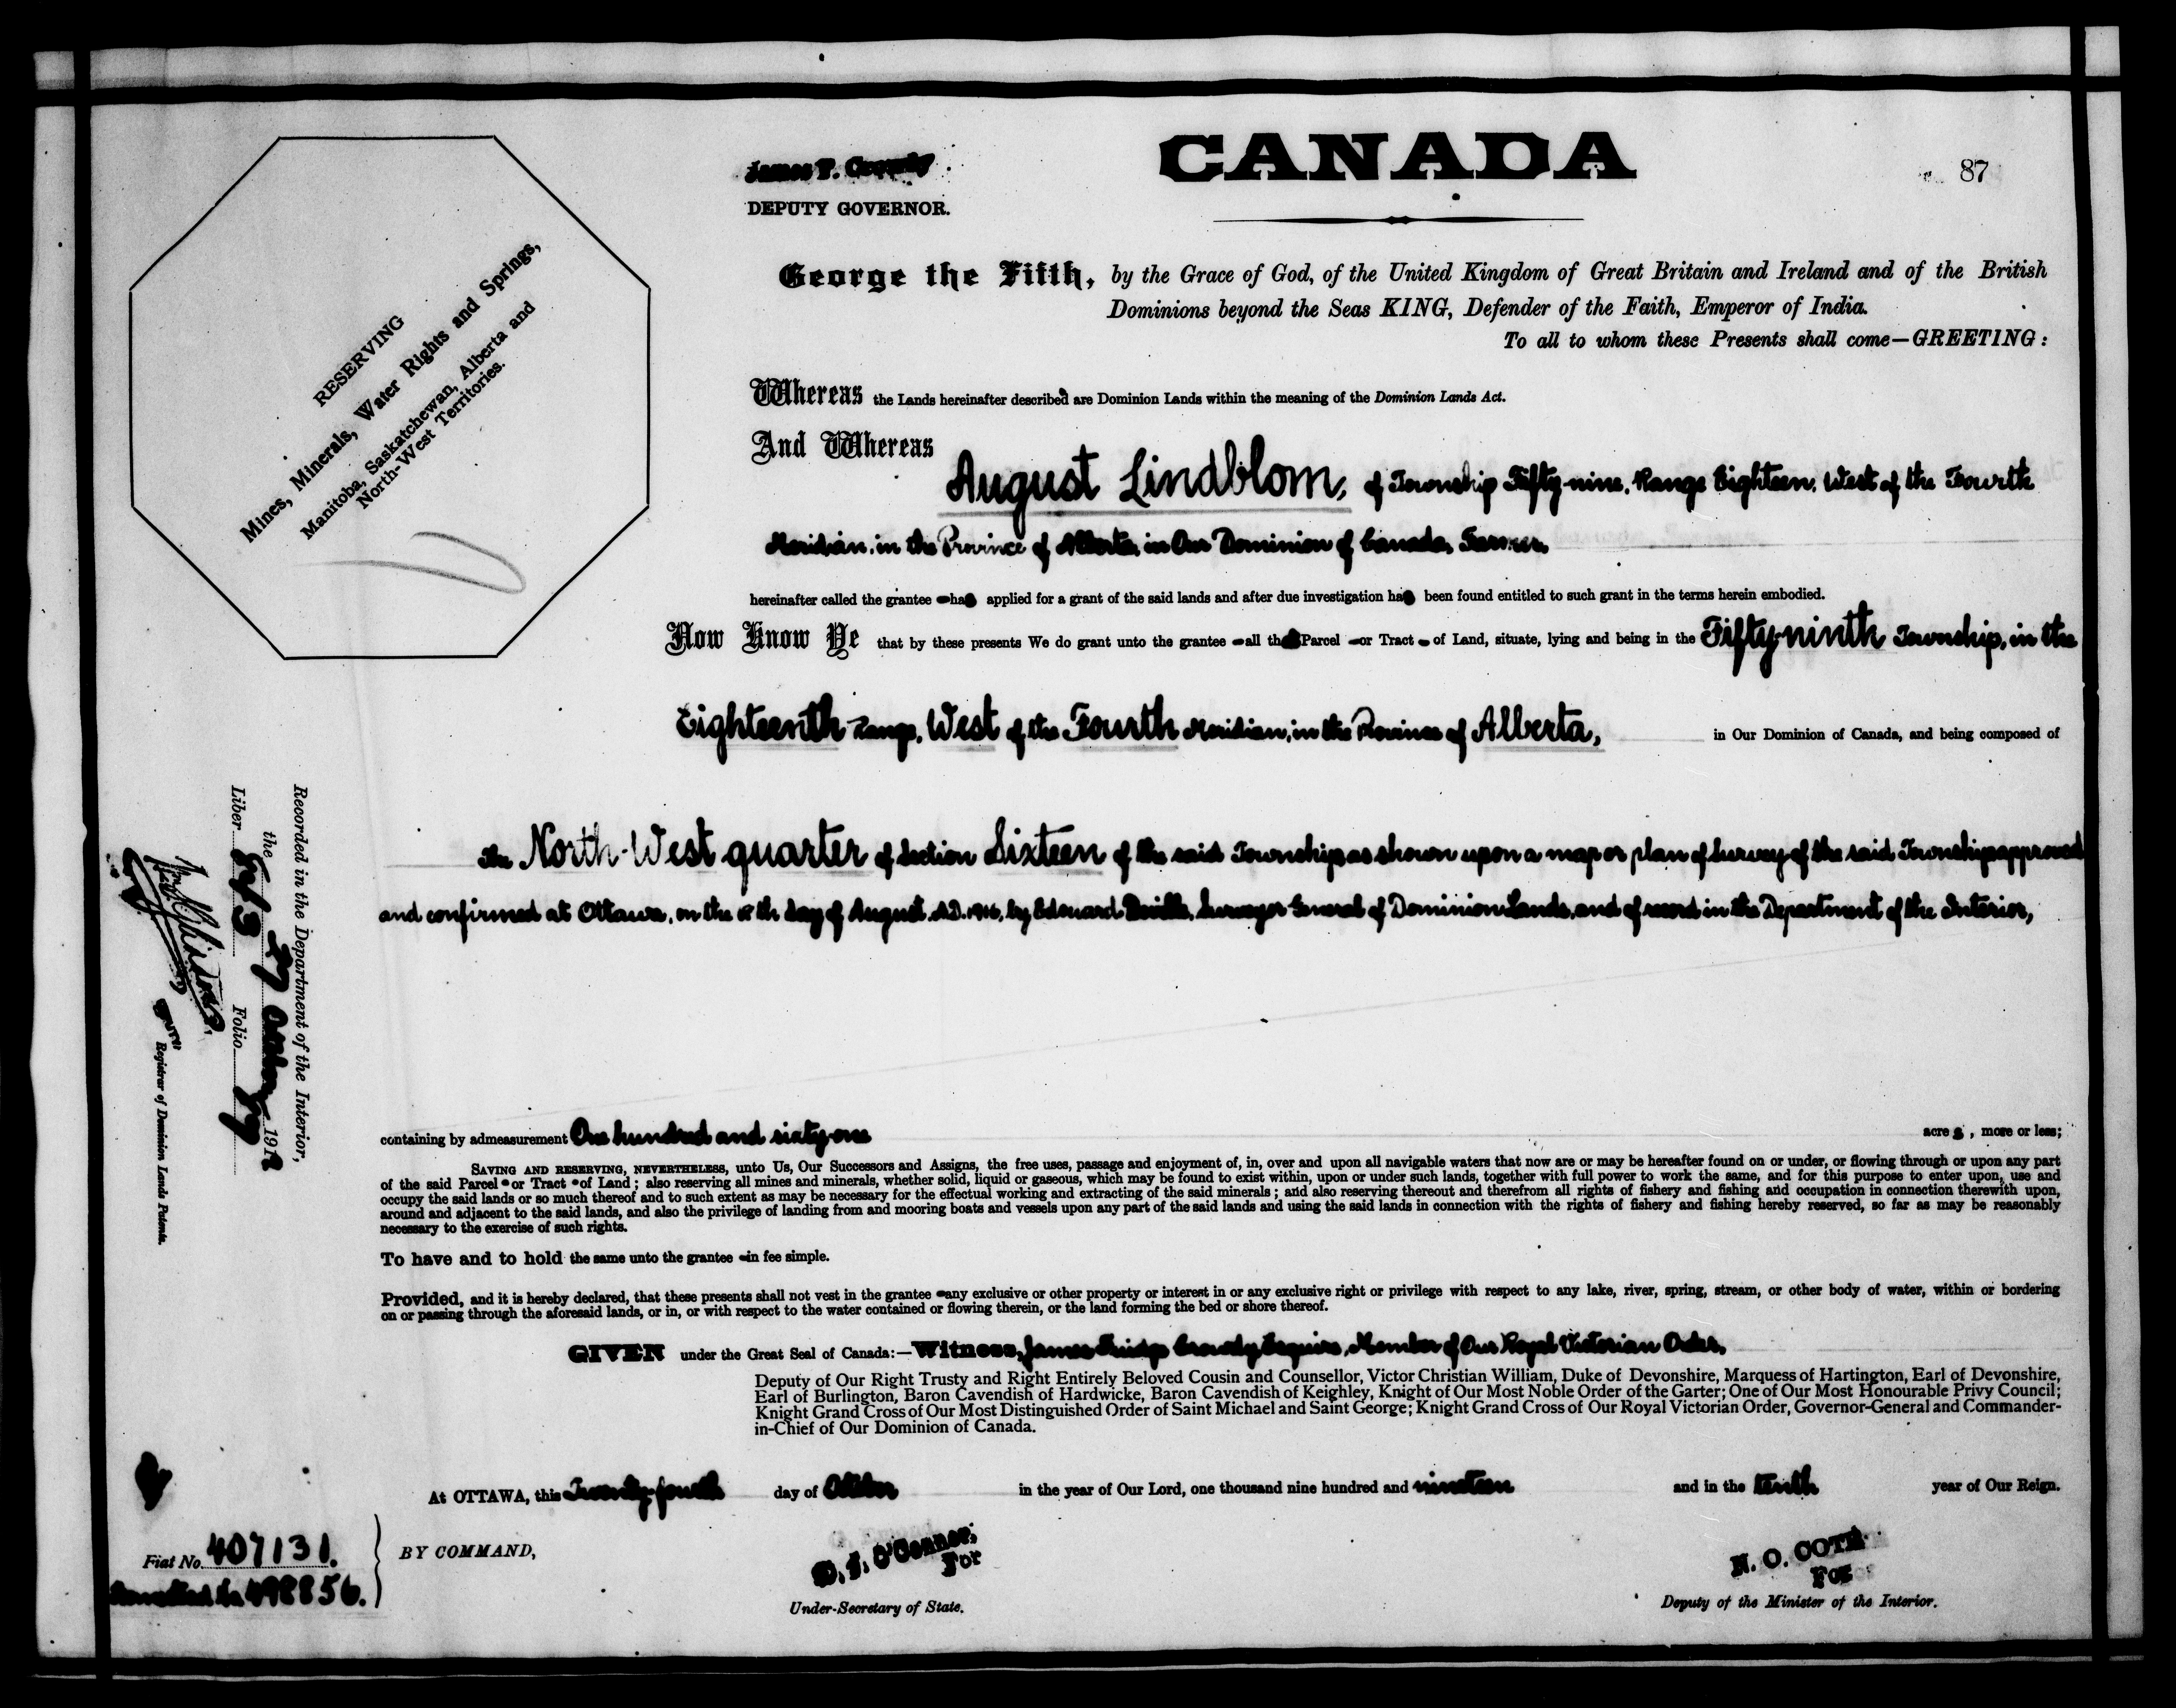 CANADA
87
James F. Crowdy
DEPUTY GOVERNOR.
RESERVING
Mines, Minerals, Water Rights and Springs,
Manitoba, Saskatchewan, Alberta and
North-West Territories.
George the Fifth, by the Grace of God, of the United Kingdom of Great Britain and Ireland and of the British
Dominions beyond the Seas KING, Defender of the Faith, Emperor of India.
To all to whom these Presents shall come—GREETING:
Whereas the Lands hereinafter described are Dominion Lands within the meaning of the Dominion Lands Act.
And Whereas
August Lindblom, of Township Fifty-nine, Range Eighteen, West of the Fourth
Meridian, in the Province of Alberta, in Our Dominion of Canada, Farmer,
hereinafter called the grantee has applied for a grant of the said lands and after due investigation has been found entitled to such grant in the terms herein embodied.
Now Know Ye that by these presents We do grant unto the grantee all that Parcel or Tract of Land, situate, lying and being in the Fifty-ninth Township, in the
Eighteenth Range, West of the Fourth Meridian, in the Province of Alberta, in Our Dominion of Canada, and being composed of
the North-West quarter of Section Sixteen of the said Township as shown upon a map or plan of survey of the said Township approved
and confirmed at Ottawa, on the day of August, A.D. 1916, by Edouard Deville, Surveyor General of Dominion Lands, and of record in the Department of the Interior,
Recorded in the Department of the Interior,
the 27 October 191
Liber Folio
Registrar of Dominion Lands Patents.
containing by admeasurement One hundred and sixty-one acres, more or less;
SAVING AND RESERVING, NEVERTHELESS, unto Us, Our Successors and Assigns, the free uses, passage and enjoyment of, in, over and upon all navigable waters that now are or may be hereafter found on or under, or flowing through or upon any part
of the said Parcel or Tract of Land; also reserving all mines and minerals, whether solid, liquid or gaseous, which may be found to exist within, upon or under such lands, together with full power to work the same, and for this purpose to enter upon, use and
occupy the said lands or so much thereof and to such extent as may be necessary for the effectual working and extracting of the said minerals; and also reserving thereout and therefrom all rights of fishery and fishing and occupation in connection therewith upon,
around and adjacent to the said lands, and also the privilege of landing from and mooring boats and vessels upon any part of the said lands and using the said lands in connection with the rights of fishery and fishing hereby reserved, so far as may be reasonably
necessary to the exercise of such rights.
To have and to hold the same unto the grantee in fee simple.
Provided, and it is hereby declared, that these presents shall not vest in the grantee any exclusive or other property or interest in or any exclusive right or privilege with respect to any lake, river, spring, stream, or other body of water, within or bordering
on or passing through the aforesaid lands, or in, or with respect to the water contained or flowing therein, or the land forming the bed or shore thereof.
GIVEN under the Great Seal of Canada:—Witness, James Crowdy Esquire, Member of Our Royal Victorian Order,
Deputy of Our Right Trusty and Right Entirely Beloved Cousin and Counsellor, Victor Christian William, Duke of Devonshire, Marquess of Hartington, Earl of Devonshire,
Earl of Burlington, Baron Cavendish of Hardwicke, Baron Cavendish of Keighley, Knight of Our Most Noble Order of the Garter; One of Our Most Honourable Privy Council;
Knight Grand Cross of Our Most Distinguished Order of Saint Michael and Saint George; Knight Grand Cross of Our Royal Victorian Order, Governor-General and Commander-
in-Chief of Our Dominion of Canada.
At OTTAWA, this Twenty-fourth day of October in the year of Our Lord, one thousand nine hundred and nineteen and in the tenth year of Our Reign.
Fiat No. 407131.
498856.
BY COMMAND,
D. J. O'Connor,
For
Under-Secretary of State.
N. O. COTE
For
Deputy of the Minister of the Interior.